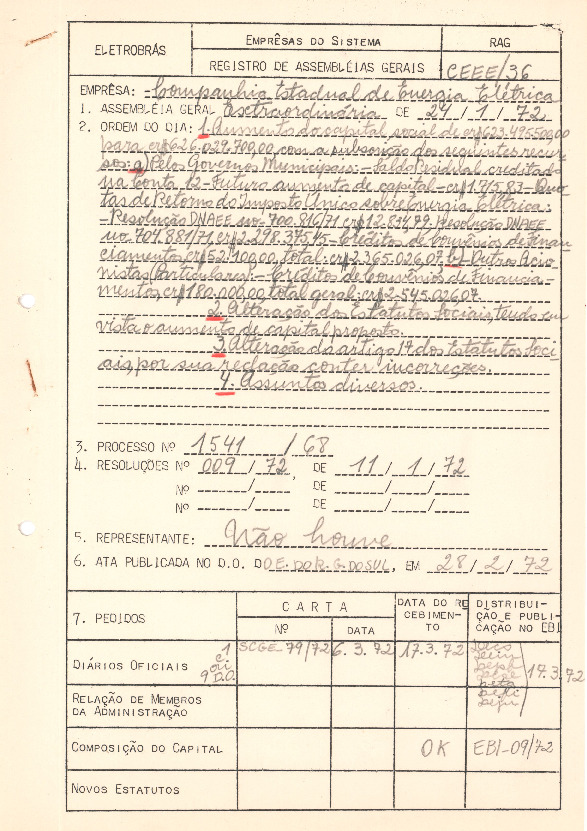 ELETROBRÁS
EMPRÊSAS DO SISTEMA
RAG
REGISTRO DE ASSEMBLÉIAS GERAIS
CEEE/36
EMPRÊSA: Companhia Estadual de Energia Elétrica
1. ASSEMBLÉIA GERAL Extraordinária DE 24/1/72
2. ORDEM DO DIA: 1. Aumento do capital social de cr$623.495.500,00
para cr$626.029.700,00 com a subscrição dos seguintes recur
sos: a) Pelos Governos Municipais: - Saldo Residual creditado
na Conta 12 - Futuro aumento de capital - cr$1.715,83 - Quo
tas de Retorno do Imposto Único sobre Energia Elétrica:
- Resolução DNAEE nº 700.816/71 cr$12.814,79; Resolução DNAEE
nº 707.881/71 cr$2.298.375,45 - Créditos de Convênios de Finan
ciamentos cr$52.100,00, total: cr$2.365.026,07. b) - Outros Acio
nistas (Particulares): - Créditos de Convênios de Financia-
mentos cr$180.000,00, total geral: cr$2.545.026,07.
2. Alteração dos Estatutos Sociais, tendo em
vista o aumento de capital proposto.
3. Alteração do artigo 17 dos Estatutos Soci
ais, por sua redação conter incorreções.
4. Assuntos diversos.
3. PROCESSO Nº 1541/68
4. RESOLUÇÕES Nº 009/72, DE 11/1/72
Nº / DE / /
Nº / DE / /
5. REPRESENTANTE: Não houve
6. ATA PUBLICADA NO D.O. DO E. DO R. G. DO SUL, EM 28/2/72
7. PEDIDOS
CARTA
Nº
DATA
DATA DO RE
CEBIMEN-
TO
DISTRIBUI-
ÇÃO E PUBLI-
CAÇÃO NO EBI
DIÁRIOS OFICIAIS
9 D.O.
SCGE-79/72
6.3.72
17.3.72
17.3.72
RELAÇÃO DE MEMBROS
DA ADMINISTRAÇÃO
COMPOSIÇÃO DO CAPITAL
OK
EBI-09/72
NOVOS ESTATUTOS